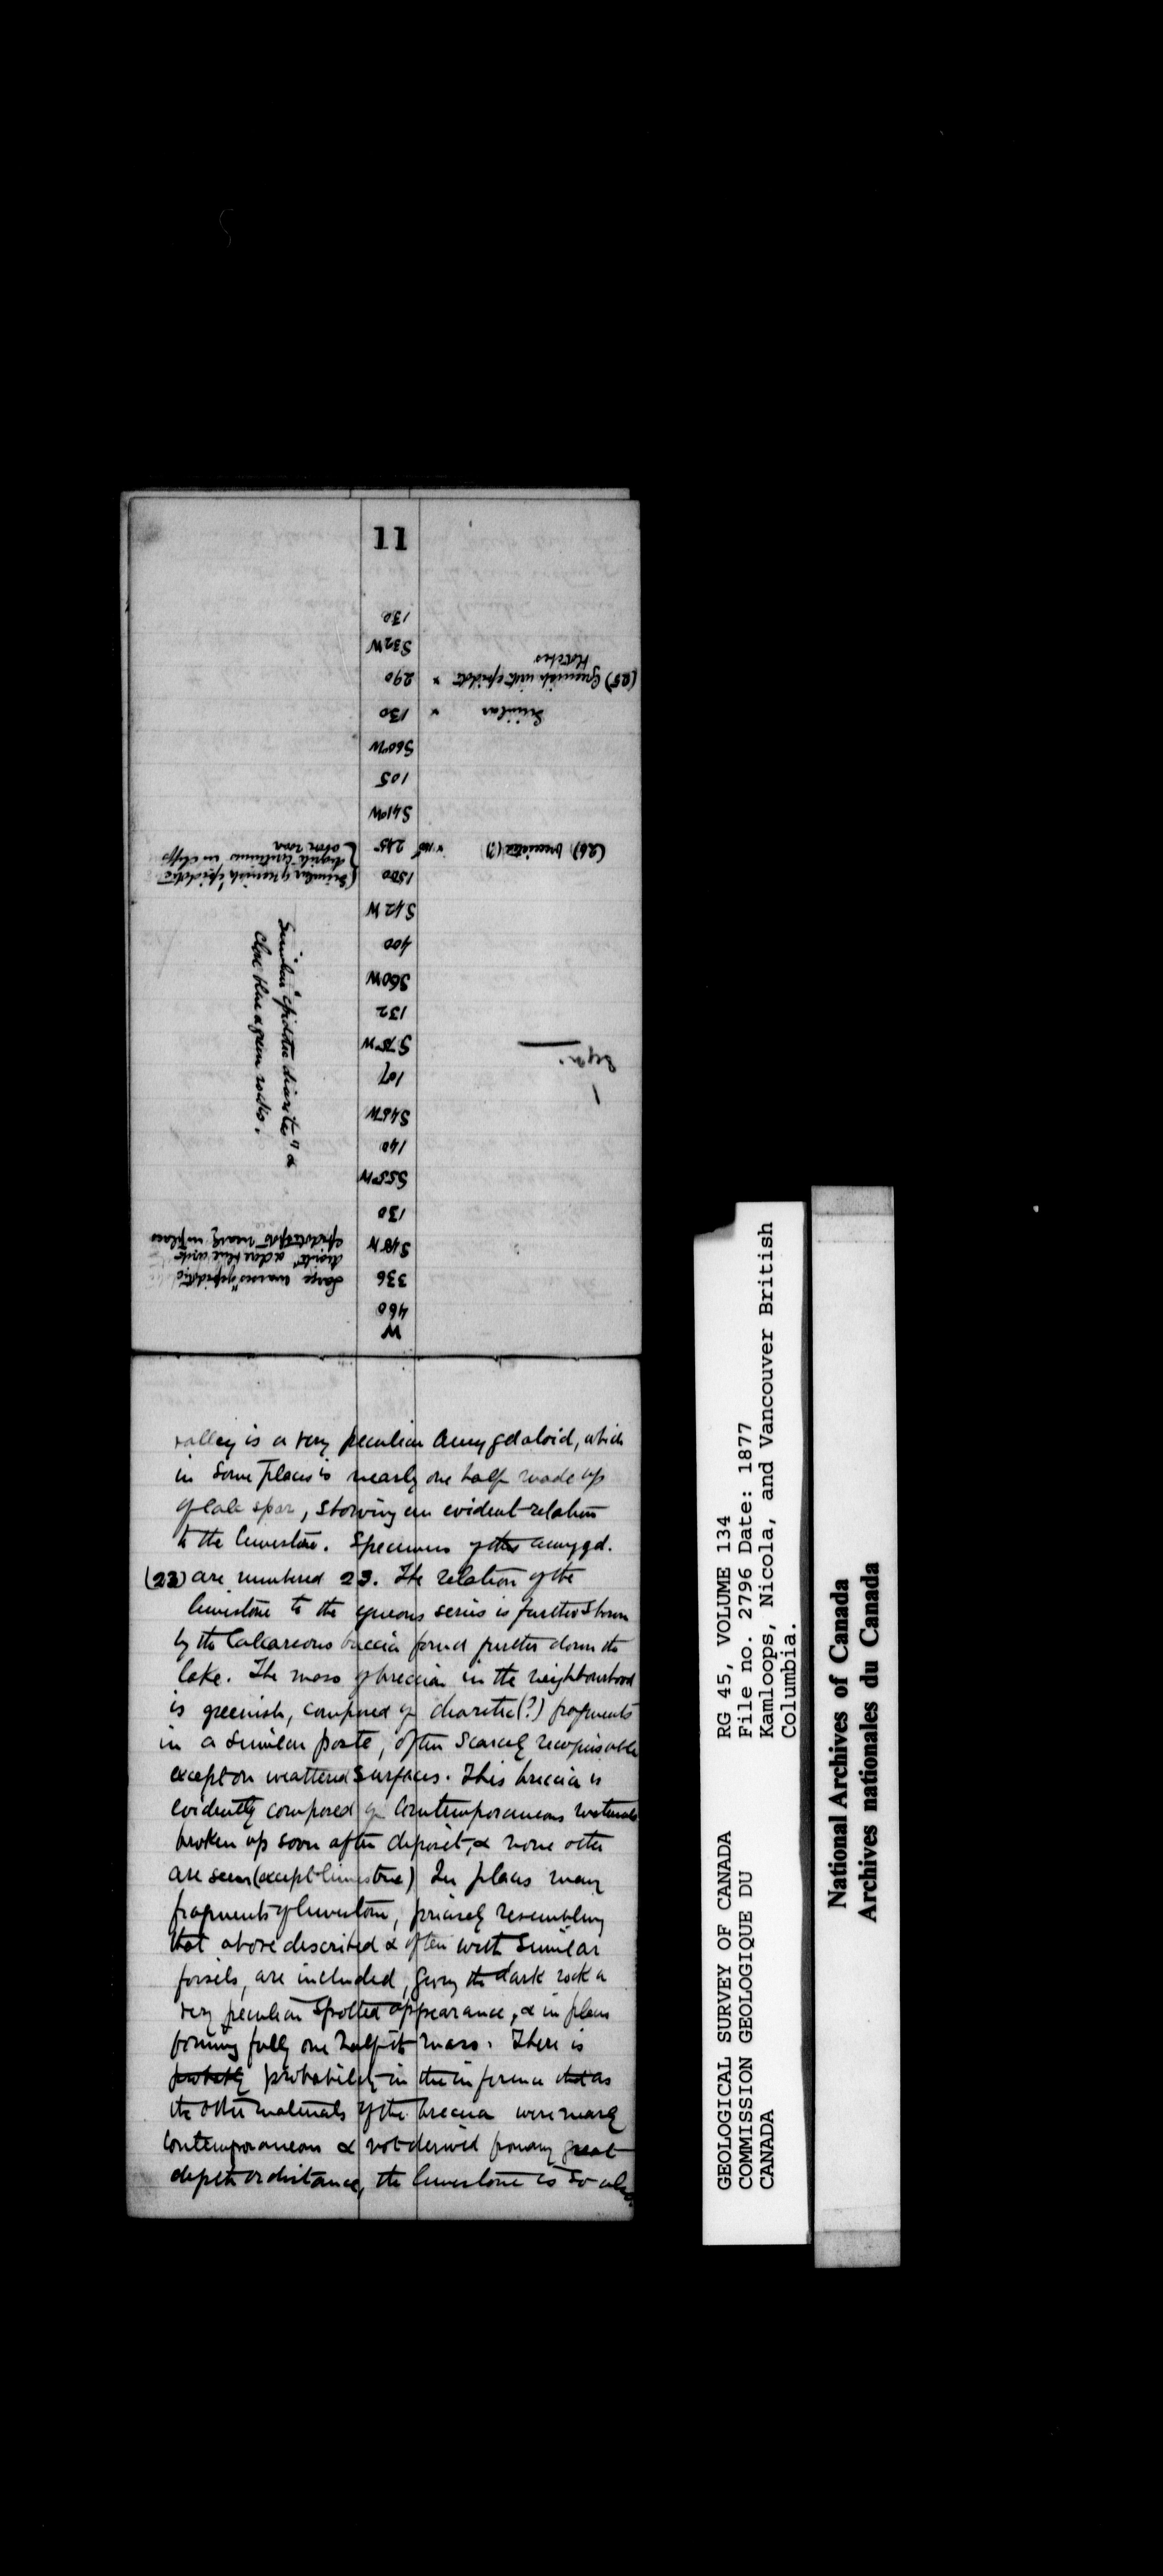 11
130
S32W
(25) Greenish with epidote x 290
blotches
Similar x 130
S60W
105
S41W
(26) brecciated (?) x 215
1500
(Similar greenish epidotic
diorite continues in cliffs
above road
S42W
400
S60W
132
S75W
107
S45W
140
S55W
130
S48W
336
460
W
Similar "epidotic diorites" &
close blue & green rocks.
Large masses "epidotic
diorite" & dark blue with
epidote spots nearly in place
valley is a very peculiar amygdaloid, which
in some places is nearly one half made up
of calc spar, showing an evident relation
to the limestone. Specimens of this amygd.
(23) are numbered 23. The relation of the
limestone to the igneous series is further shown
by the Calcareous breccia found further down the
lake. The mass of breccia in the neighbourhood
is greenish, composed of dioritic (?) fragments
in a similar paste, often scarcely recognisable
except on weathered surfaces. This breccia is
evidently composed of contemporaneous materials
broken up soon after deposit, & none other
are seen (except limestone) In places many
fragments of limestone, precisely resembling
that above described & often with similar
fossils, are included, giving the dark rock a
very peculiar spotted appearance, & in places
forming fully one half its mass. There is
probably probability in the inference that as
the other materials of the breccia were nearly
contemporaneous & not derived from any great
depth or distance, the limestone is so also
GEOLOGICAL SURVEY OF CANADA
COMMISSION GEOLOGIQUE DU
CANADA
RG 45, VOLUME 134
File no. 2796 Date: 1877
Kamloops, Nicola, and Vancouver British
Columbia.
National Archives of Canada
Archives nationales du Canada